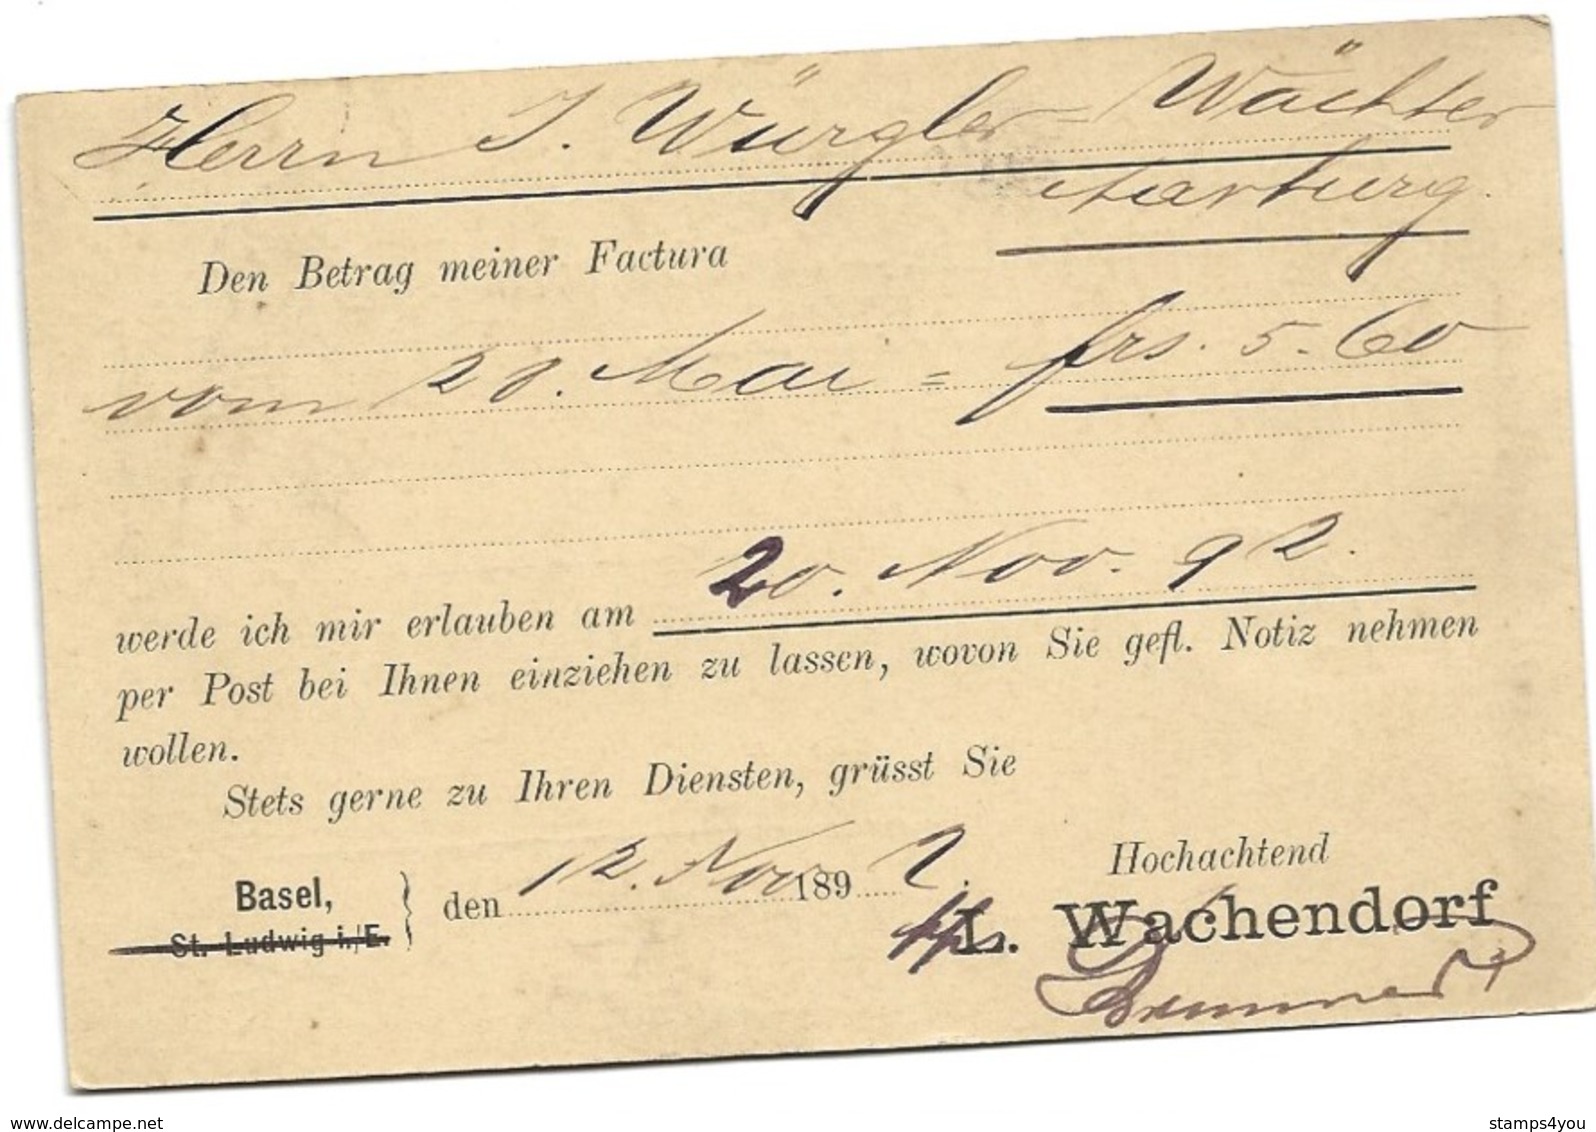 Herrn J. Würgler-Wächter
Aarburg.
Den Betrag meiner Factura
vom 28. Mai = frs. 5.60
werde ich mir erlauben am 20. Nov. 92.
per Post bei Ihnen einziehen zu lassen, wovon Sie gefl. Notiz nehmen
wollen.
Stets gerne zu Ihren Diensten, grüsst Sie
Hochachtend
Basel,
St. Ludwig i./E.
den 12. Nov 1892.
L. Wachendorf
stamps4you.com
stamps4you